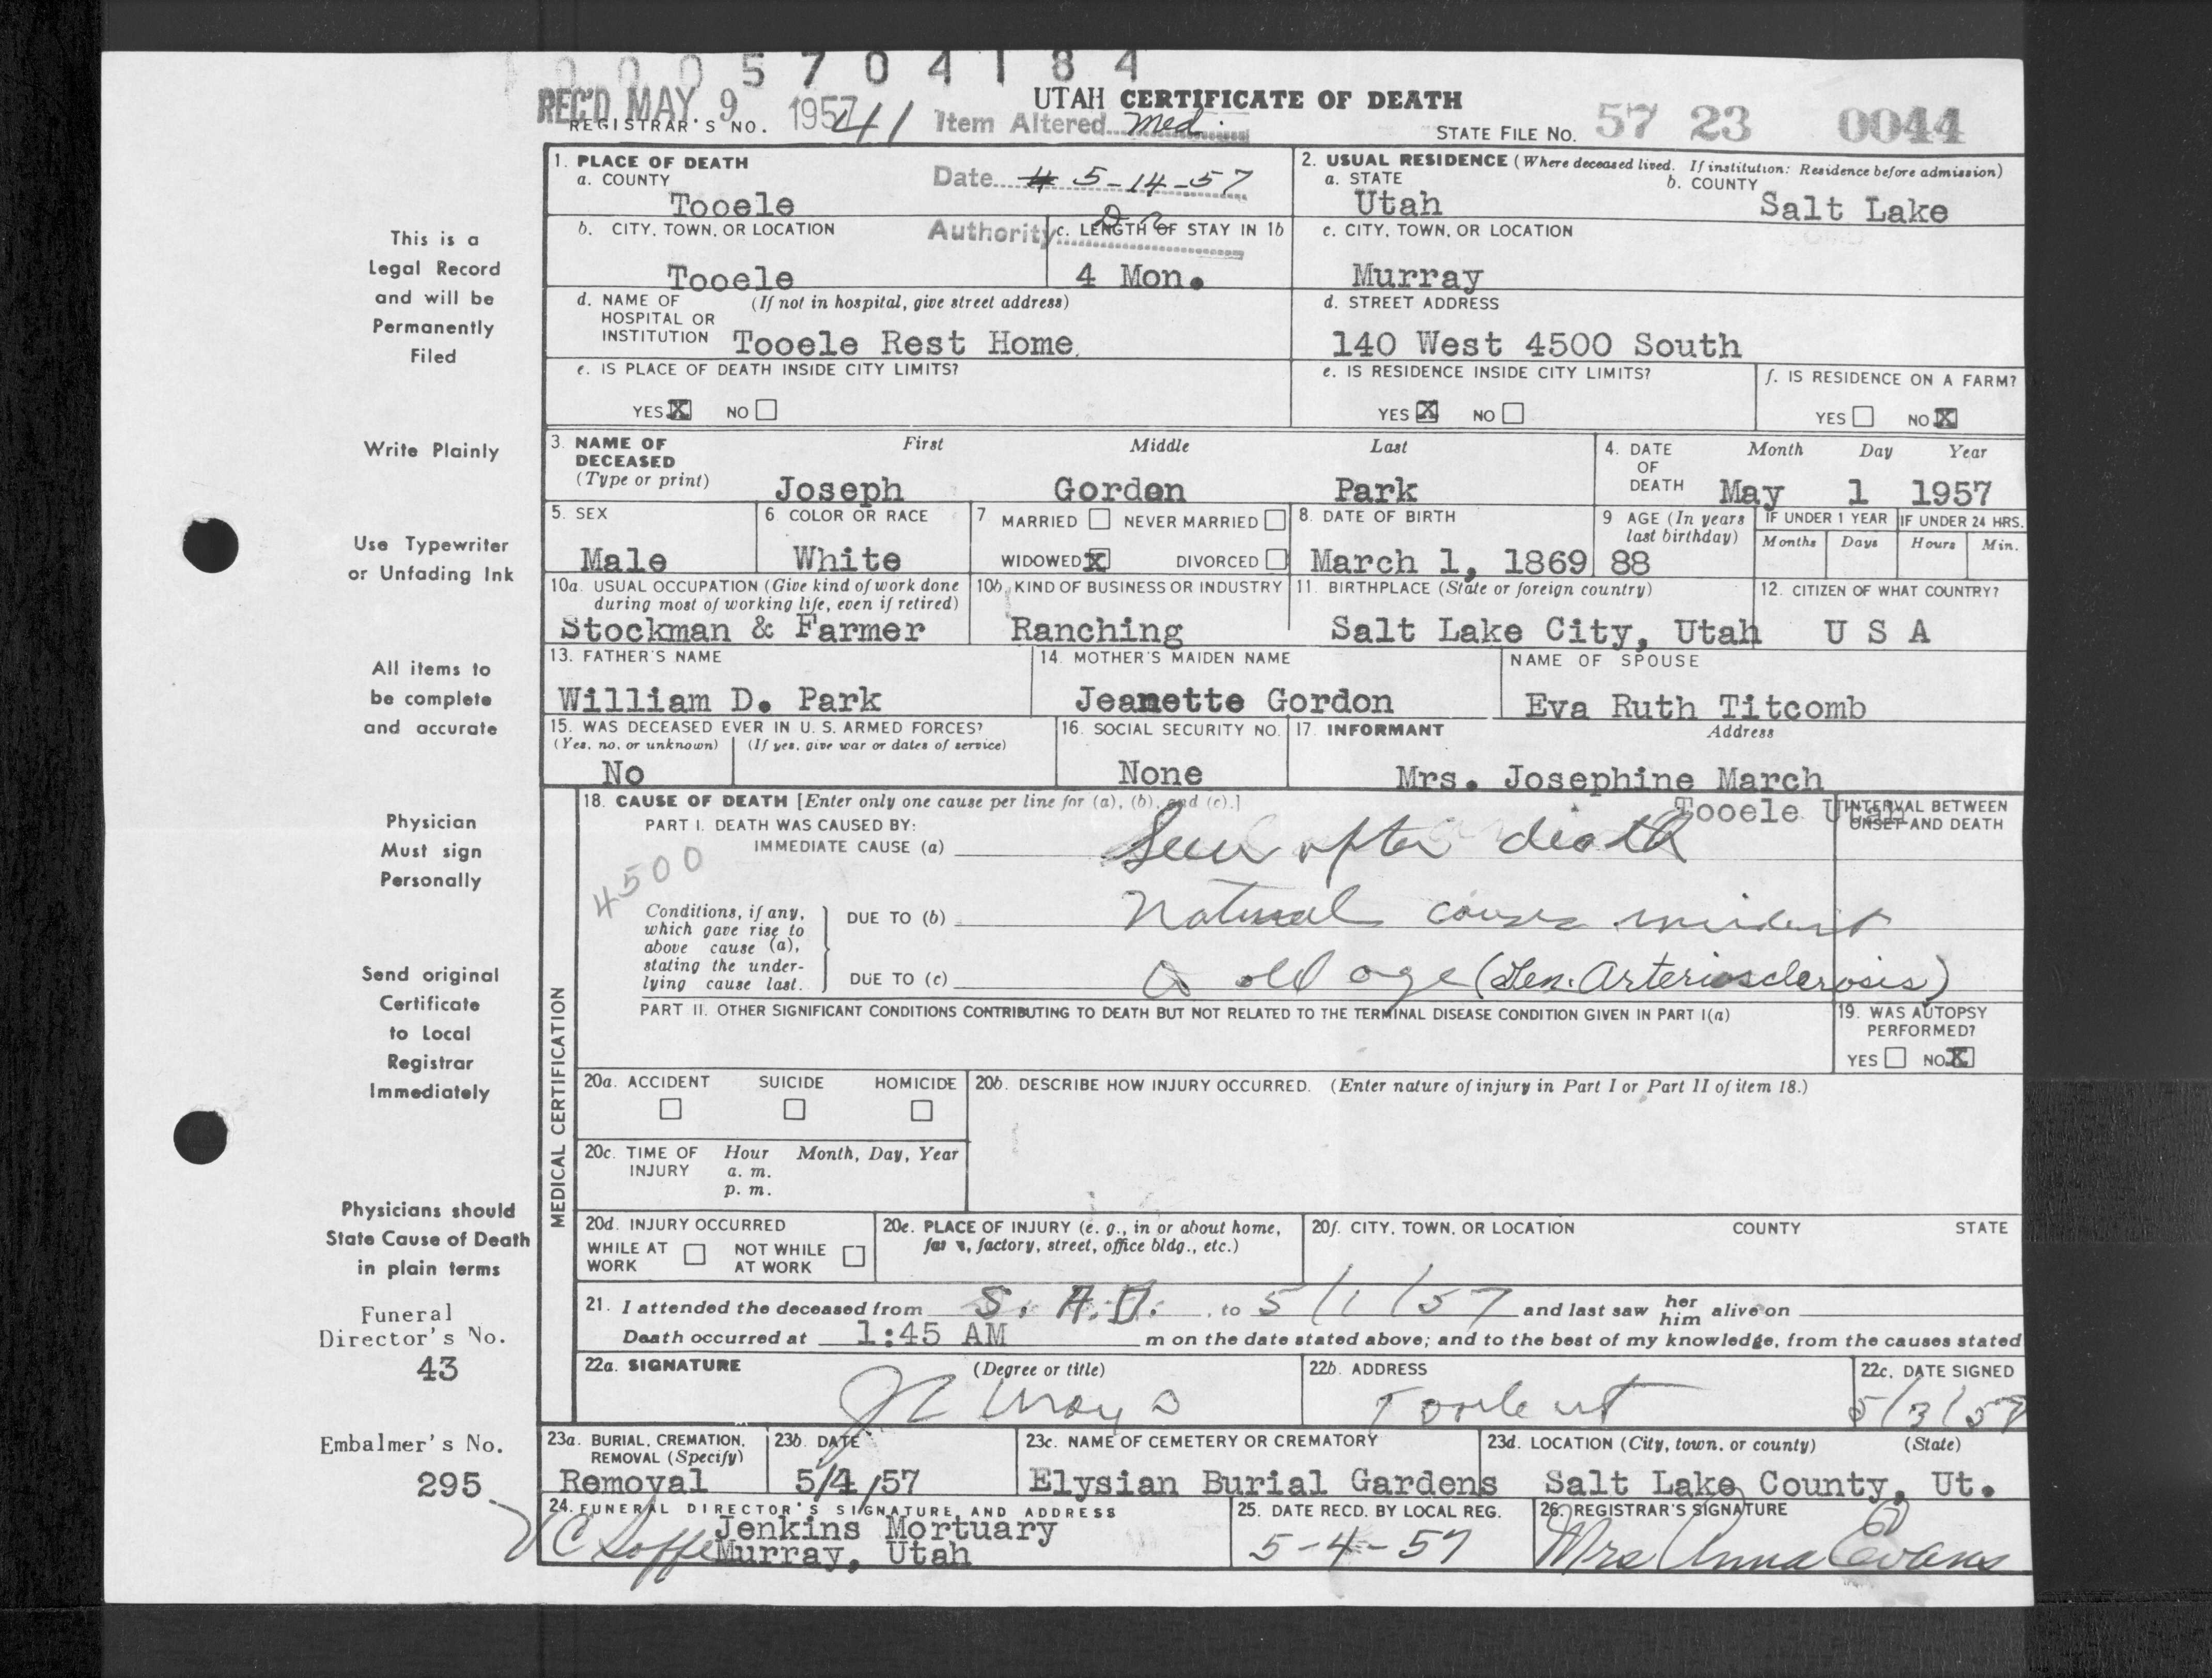 0005704184
REC'D MAY 9 1957
UTAH CERTIFICATE OF DEATH
REGISTRAR'S NO. 41
Item Altered Med.
STATE FILE NO. 57 23 0044
1. PLACE OF DEATH
a. COUNTY
Tooele
Date 5-14-57
2. USUAL RESIDENCE (Where deceased lived. If institution: Residence before admission)
a. STATE
Utah
b. COUNTY
Salt Lake
b. CITY, TOWN, OR LOCATION
Tooele
Authority Dr
c. LENGTH OF STAY IN 1b
4 Mon.
c. CITY, TOWN, OR LOCATION
Murray
d. NAME OF (If not in hospital, give street address)
HOSPITAL OR
INSTITUTION Tooele Rest Home
d. STREET ADDRESS
140 West 4500 South
e. IS PLACE OF DEATH INSIDE CITY LIMITS?
YES X NO
e. IS RESIDENCE INSIDE CITY LIMITS?
YES X NO
f. IS RESIDENCE ON A FARM?
YES NO X
3. NAME OF
DECEASED
(Type or print)
First Middle Last
Joseph Gordon Park
4. DATE
OF
DEATH
Month Day Year
May 1 1957
5. SEX
Male
6 COLOR OR RACE
White
7 MARRIED NEVER MARRIED
WIDOWED X DIVORCED
8. DATE OF BIRTH
March 1, 1869
9 AGE (In years
last birthday)
88
IF UNDER 1 YEAR
Months Days
IF UNDER 24 HRS.
Hours Min.
10a. USUAL OCCUPATION (Give kind of work done
during most of working life, even if retired)
Stockman & Farmer
10b. KIND OF BUSINESS OR INDUSTRY
Ranching
11. BIRTHPLACE (State or foreign country)
Salt Lake City, Utah
12. CITIZEN OF WHAT COUNTRY?
U S A
13. FATHER'S NAME
William D. Park
14. MOTHER'S MAIDEN NAME
Jeanette Gordon
NAME OF SPOUSE
Eva Ruth Titcomb
15. WAS DECEASED EVER IN U. S. ARMED FORCES?
(Yes, no, or unknown) (If yes, give war or dates of service)
No
16. SOCIAL SECURITY NO.
None
17. INFORMANT Address
Mrs. Josephine March
Tooele Utah
MEDICAL CERTIFICATION
18. CAUSE OF DEATH [Enter only one cause per line for (a), (b), and (c).]
INTERVAL BETWEEN
ONSET AND DEATH
PART I. DEATH WAS CAUSED BY:
IMMEDIATE CAUSE (a) Seen after death
4500
Conditions, if any,
which gave rise to
above cause (a),
stating the under-
lying cause last.
DUE TO (b) Natural causes incident
DUE TO (c) to old age (Gen. Arteriosclerosis)
PART II. OTHER SIGNIFICANT CONDITIONS CONTRIBUTING TO DEATH BUT NOT RELATED TO THE TERMINAL DISEASE CONDITION GIVEN IN PART I(a)
19. WAS AUTOPSY
PERFORMED?
YES NO X
20a. ACCIDENT SUICIDE HOMICIDE
20b. DESCRIBE HOW INJURY OCCURRED. (Enter nature of injury in Part I or Part II of item 18.)
20c. TIME OF
INJURY
Hour Month, Day, Year
a. m.
p. m.
20d. INJURY OCCURRED
WHILE AT
WORK
NOT WHILE
AT WORK
20e. PLACE OF INJURY (e. g., in or about home,
farm, factory, street, office bldg., etc.)
20f. CITY, TOWN, OR LOCATION COUNTY STATE
21. I attended the deceased from S. A. D. , to 5/1/57 and last saw her him alive on
Death occurred at 1:45 AM m on the date stated above; and to the best of my knowledge, from the causes stated
22a. SIGNATURE (Degree or title)
22b. ADDRESS
Tooele ut
22c. DATE SIGNED
5/3/57
23a. BURIAL, CREMATION,
REMOVAL (Specify)
Removal
23b. DATE
5/4/57
23c. NAME OF CEMETERY OR CREMATORY
Elysian Burial Gardens
23d. LOCATION (City, town, or county) (State)
Salt Lake County, Ut.
24. FUNERAL DIRECTOR'S SIGNATURE AND ADDRESS
Jenkins Mortuary
Murray, Utah
25. DATE RECD. BY LOCAL REG.
5-4-57
26. REGISTRAR'S SIGNATURE
Mrs Anna Evans
This is a
Legal Record
and will be
Permanently
Filed
Write Plainly
Use Typewriter
or Unfading Ink
All items to
be complete
and accurate
Physician
Must sign
Personally
Send original
Certificate
to Local
Registrar
Immediately
Physicians should
State Cause of Death
in plain terms
Funeral
Director's No.
43
Embalmer's No.
295